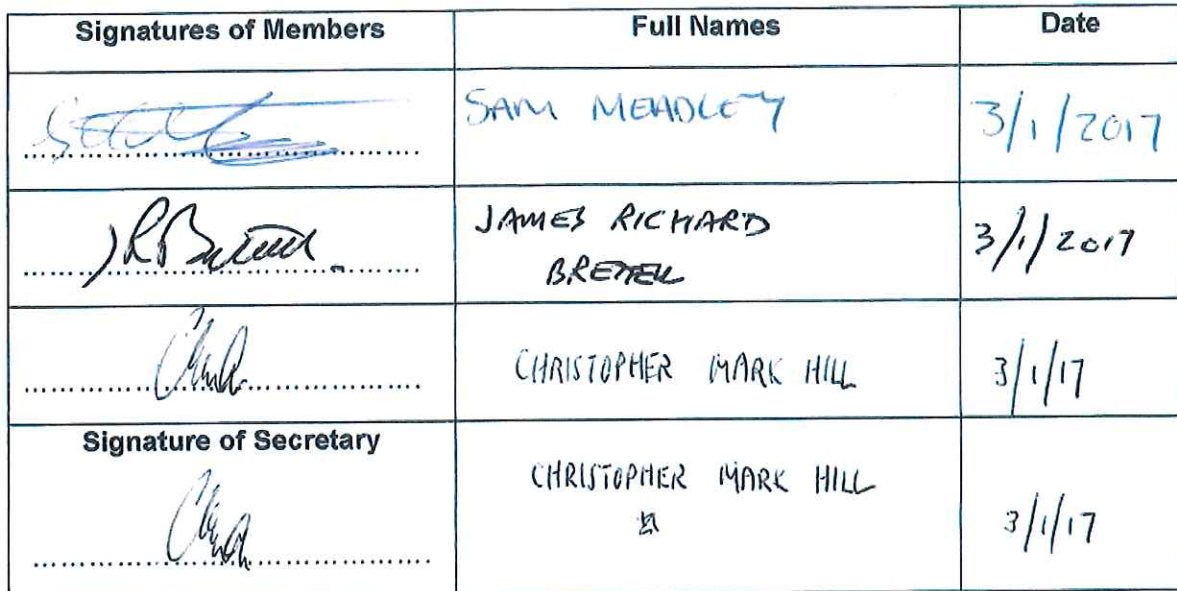 Signatures of Members Full Names Date
SAM MEADLEY 3/1/2017
JAMES RICHARD 3/1/2017
CHRISTOPHER MARK HILL 3/1/17
Signature of Secretary
CHRISTOPHER MARK HILL
3/1/17